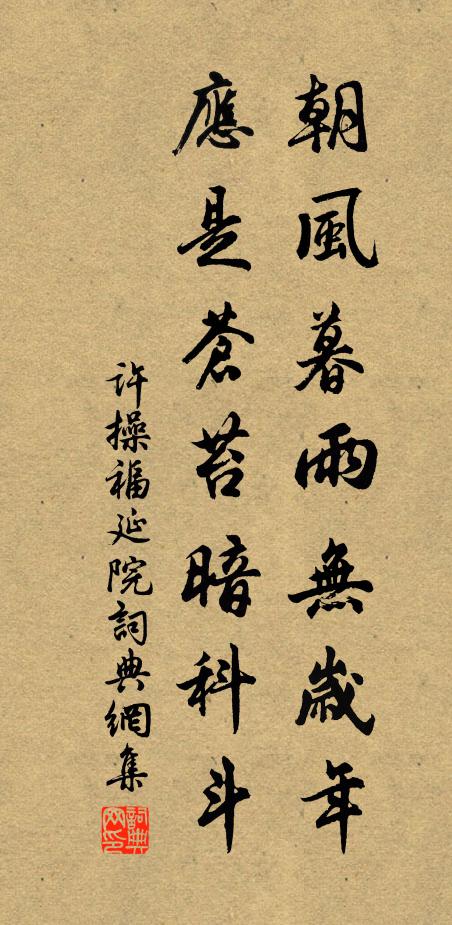 朝風暮雨無歲年
應是蒼苔暗科斗
許操福延院詞典網集
詞典网印